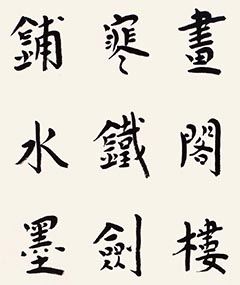 畫閣樓
寒鐵劍
鋪水墨